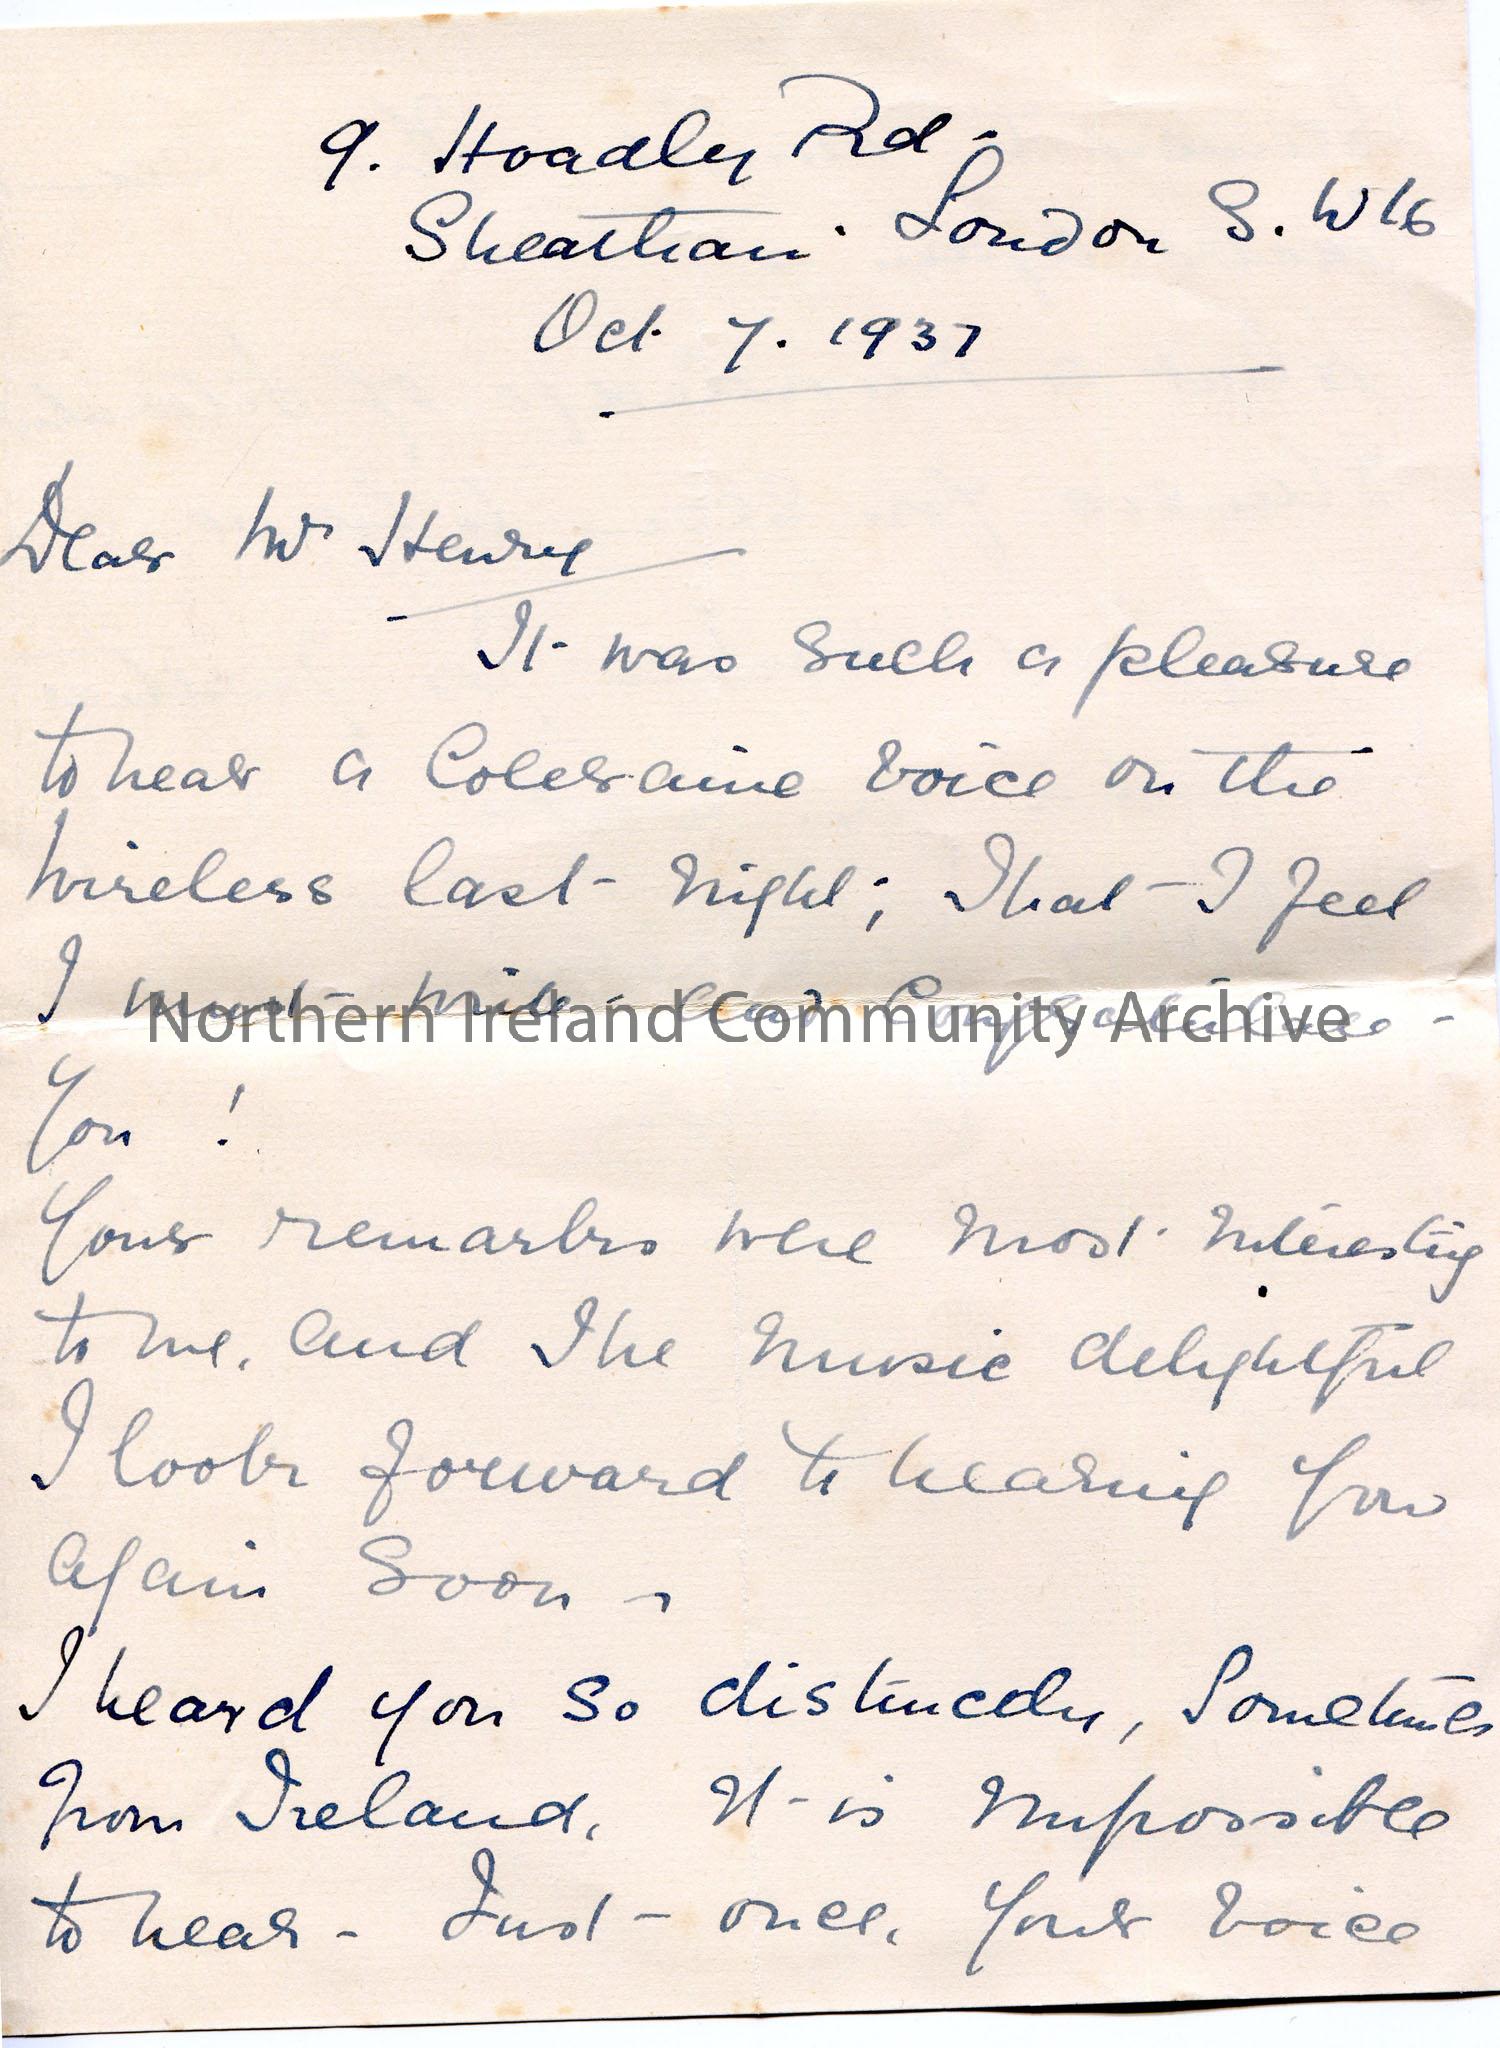 9. Hoadly Rd -
Streatham. London S. W 16
Oct. 7. 1937
Dear Mr Henry
It was such a pleasure
to hear a Coleraine voice on the
wireless last night; that I feel
I must write and Congratulate
Northern Ireland Community Archive
You !
Your remarks were most interesting
to me, and the music delightful
I look forward to hearing you
again soon -
I heard you so distinctly, Sometimes
from Ireland, It is impossible
to hear - Just once, your voice